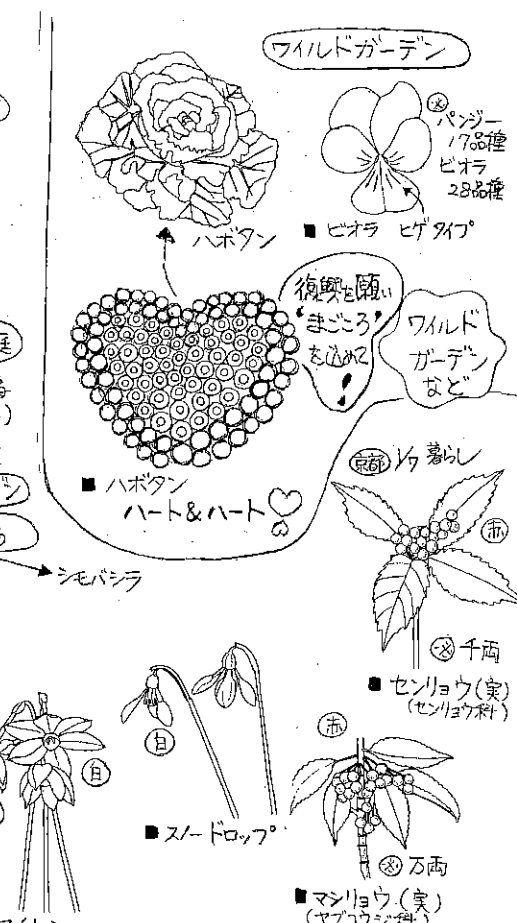 ワイルドガーデン
パンジー
17品種
ビオラ
28品種
■ ビオラ ヒゲタイプ
ハボタン
復興を願い
"まごころ"
を込めて
!
ワイルド
ガーデン
など
■ ハボタン
ハート&ハート
シモバシラ
京都 1/7 暮らし
赤
千両
■ センリョウ(実)
(センリョウ科)
白
白
■ スノードロップ
赤
万両
■ マンリョウ(実)
(ヤブコウジ科)